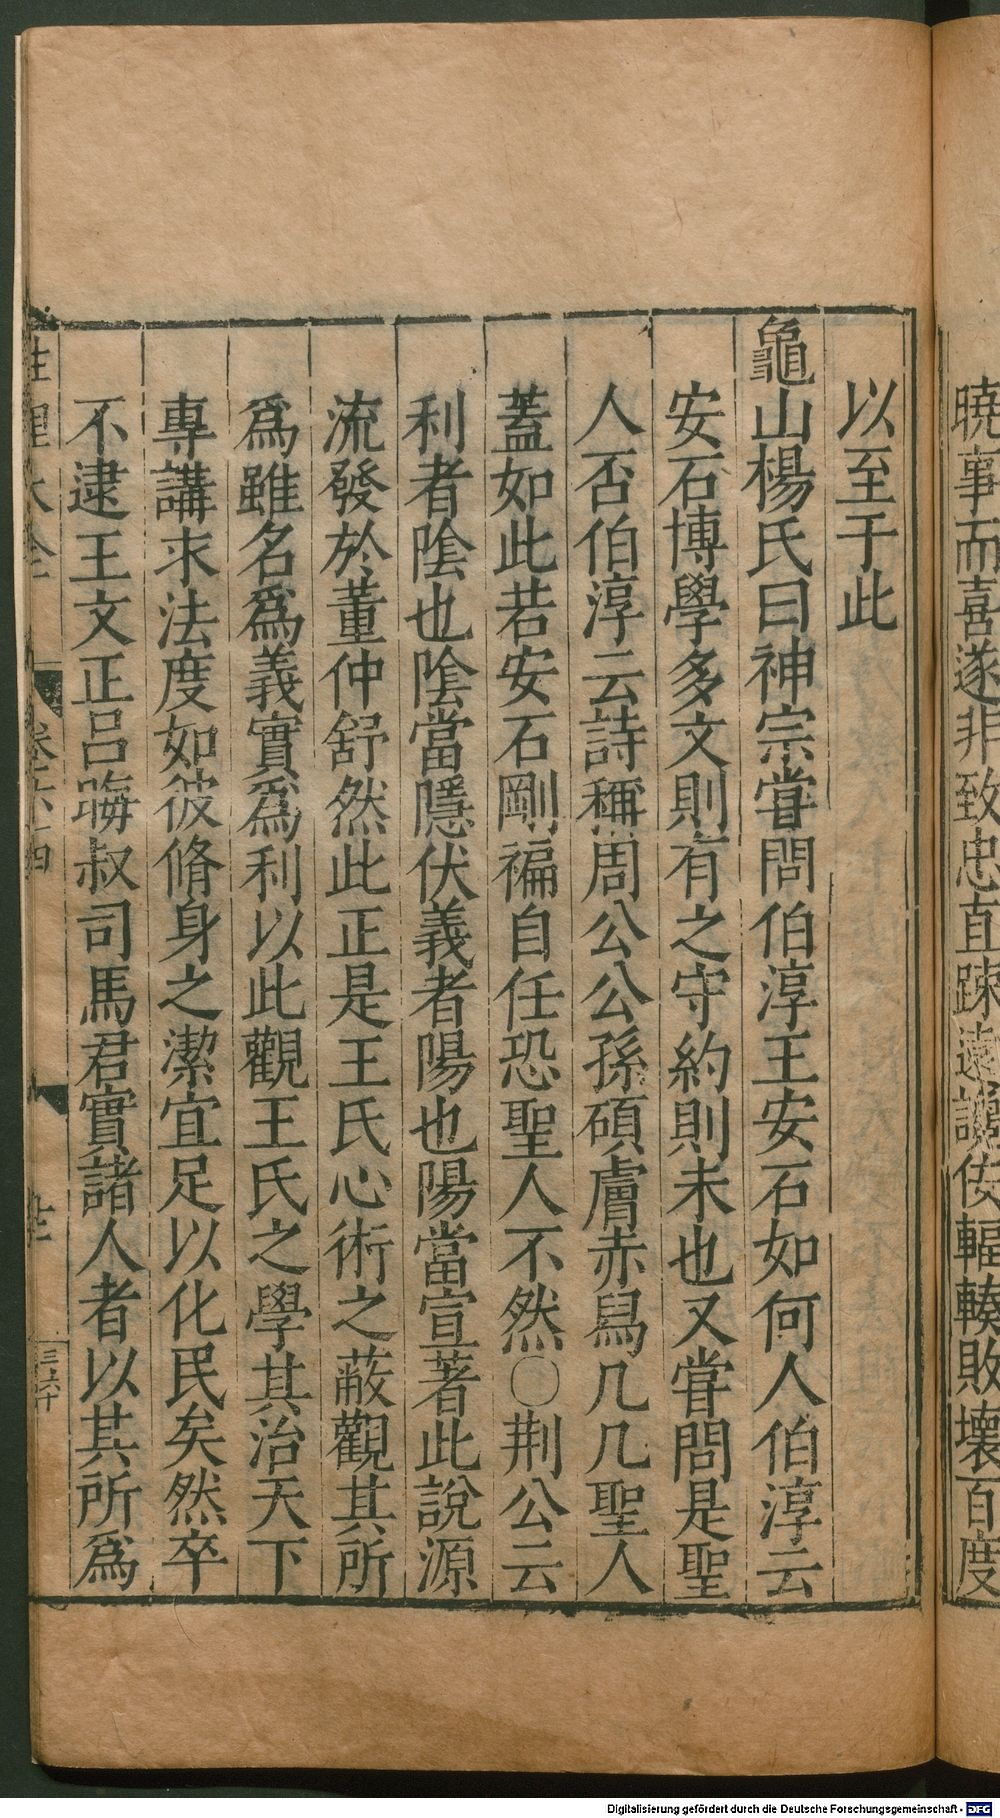 曉事而喜遂非致忠直踈遠讒佞輻輳敗壞百度
以至于此
龜山楊氏曰神宗甞問伯淳王安石如何人伯淳云
安石博學多文則有之守約則未也又甞問是聖
人否伯淳云詩稱周公公孫碩膚赤舄几几聖人
蓋如此若安石剛褊自任恐聖人不然○荆公云
利者隂也隂當隱伏義者陽也陽當宣著此說源
流發於董仲舒然此正是王氏心術之蔽觀其所
爲雖名爲義實爲利以此觀王氏之學其治天下
專講求法度如彼脩身之潔宜足以化民矣然卒
不逮王文正呂晦叔司馬君實諸人者以其所爲
性理大全
卷六十四
三六十
Digitalisierung gefördert durch die Deutsche Forschungsgemeinschaft - DFG